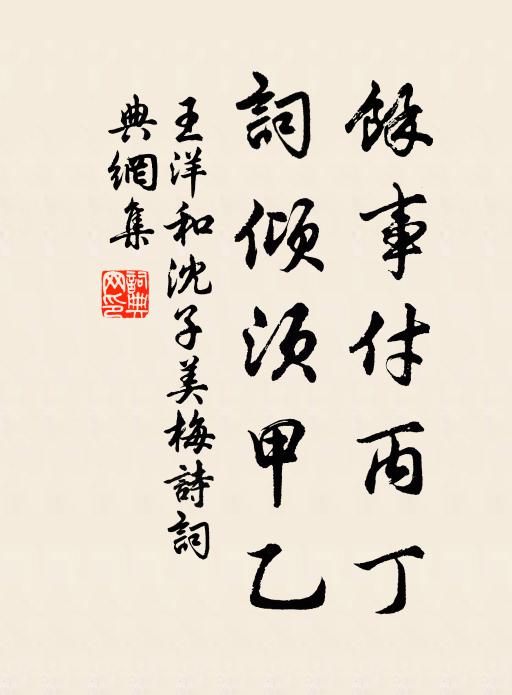 餘事付丙丁
詞傾須甲乙
王洋和沈子美梅詩詞
典網集
詞典
網印